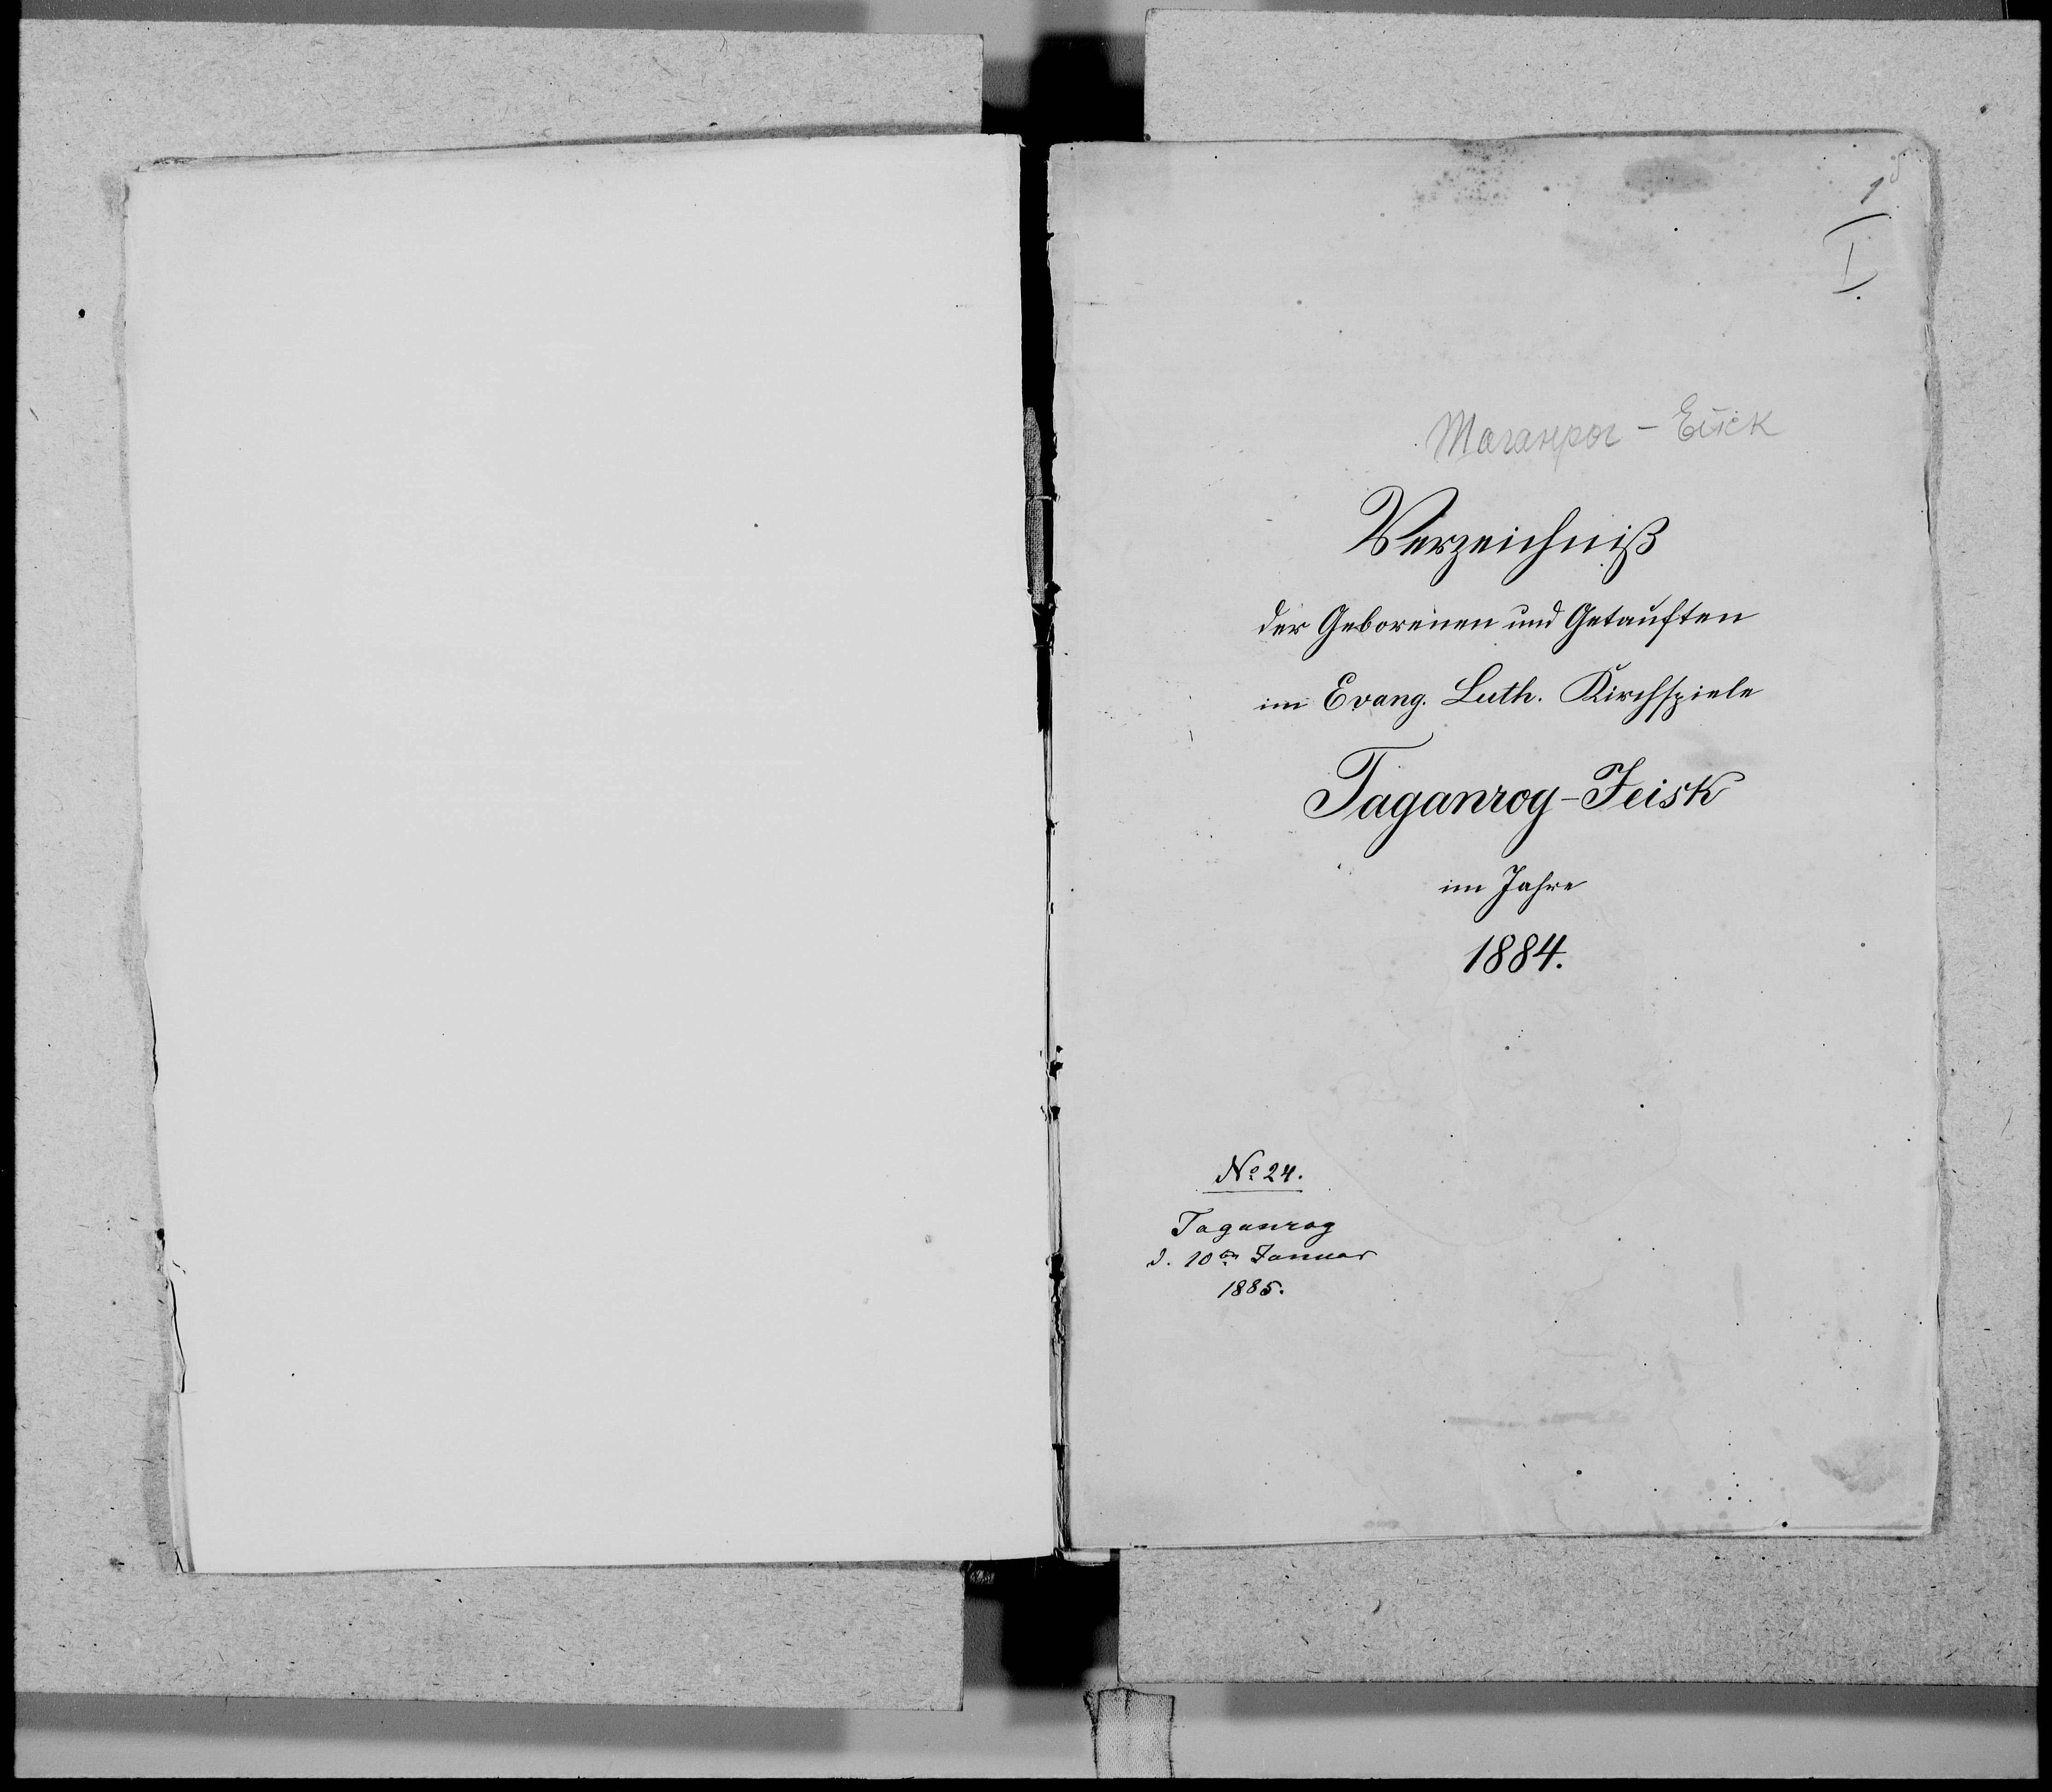 1
I.
Таганрог - Ейск
Verzeichniß
der Geborenen und Getauften
im Evang. Luth. Kirchspiele
Taganrog-Jeisk
im Jahre
1884.
No 24.
Taganrog
d. 10ten Januar
1885.